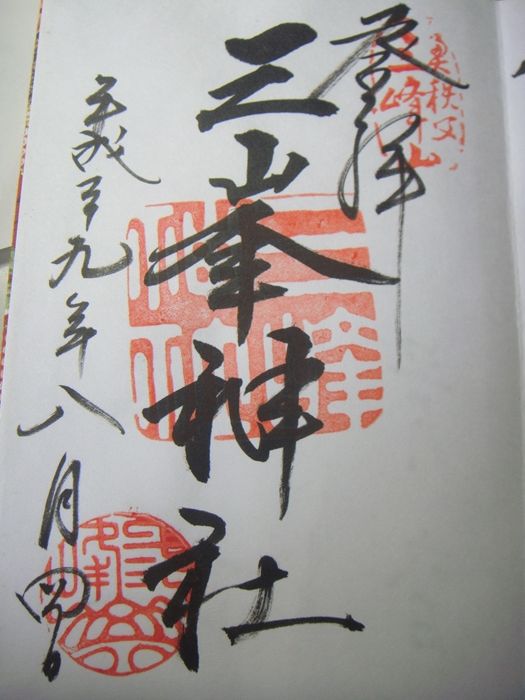 奥秩父
三峰山
登拝
三峯神社
平成二十九年八月四日